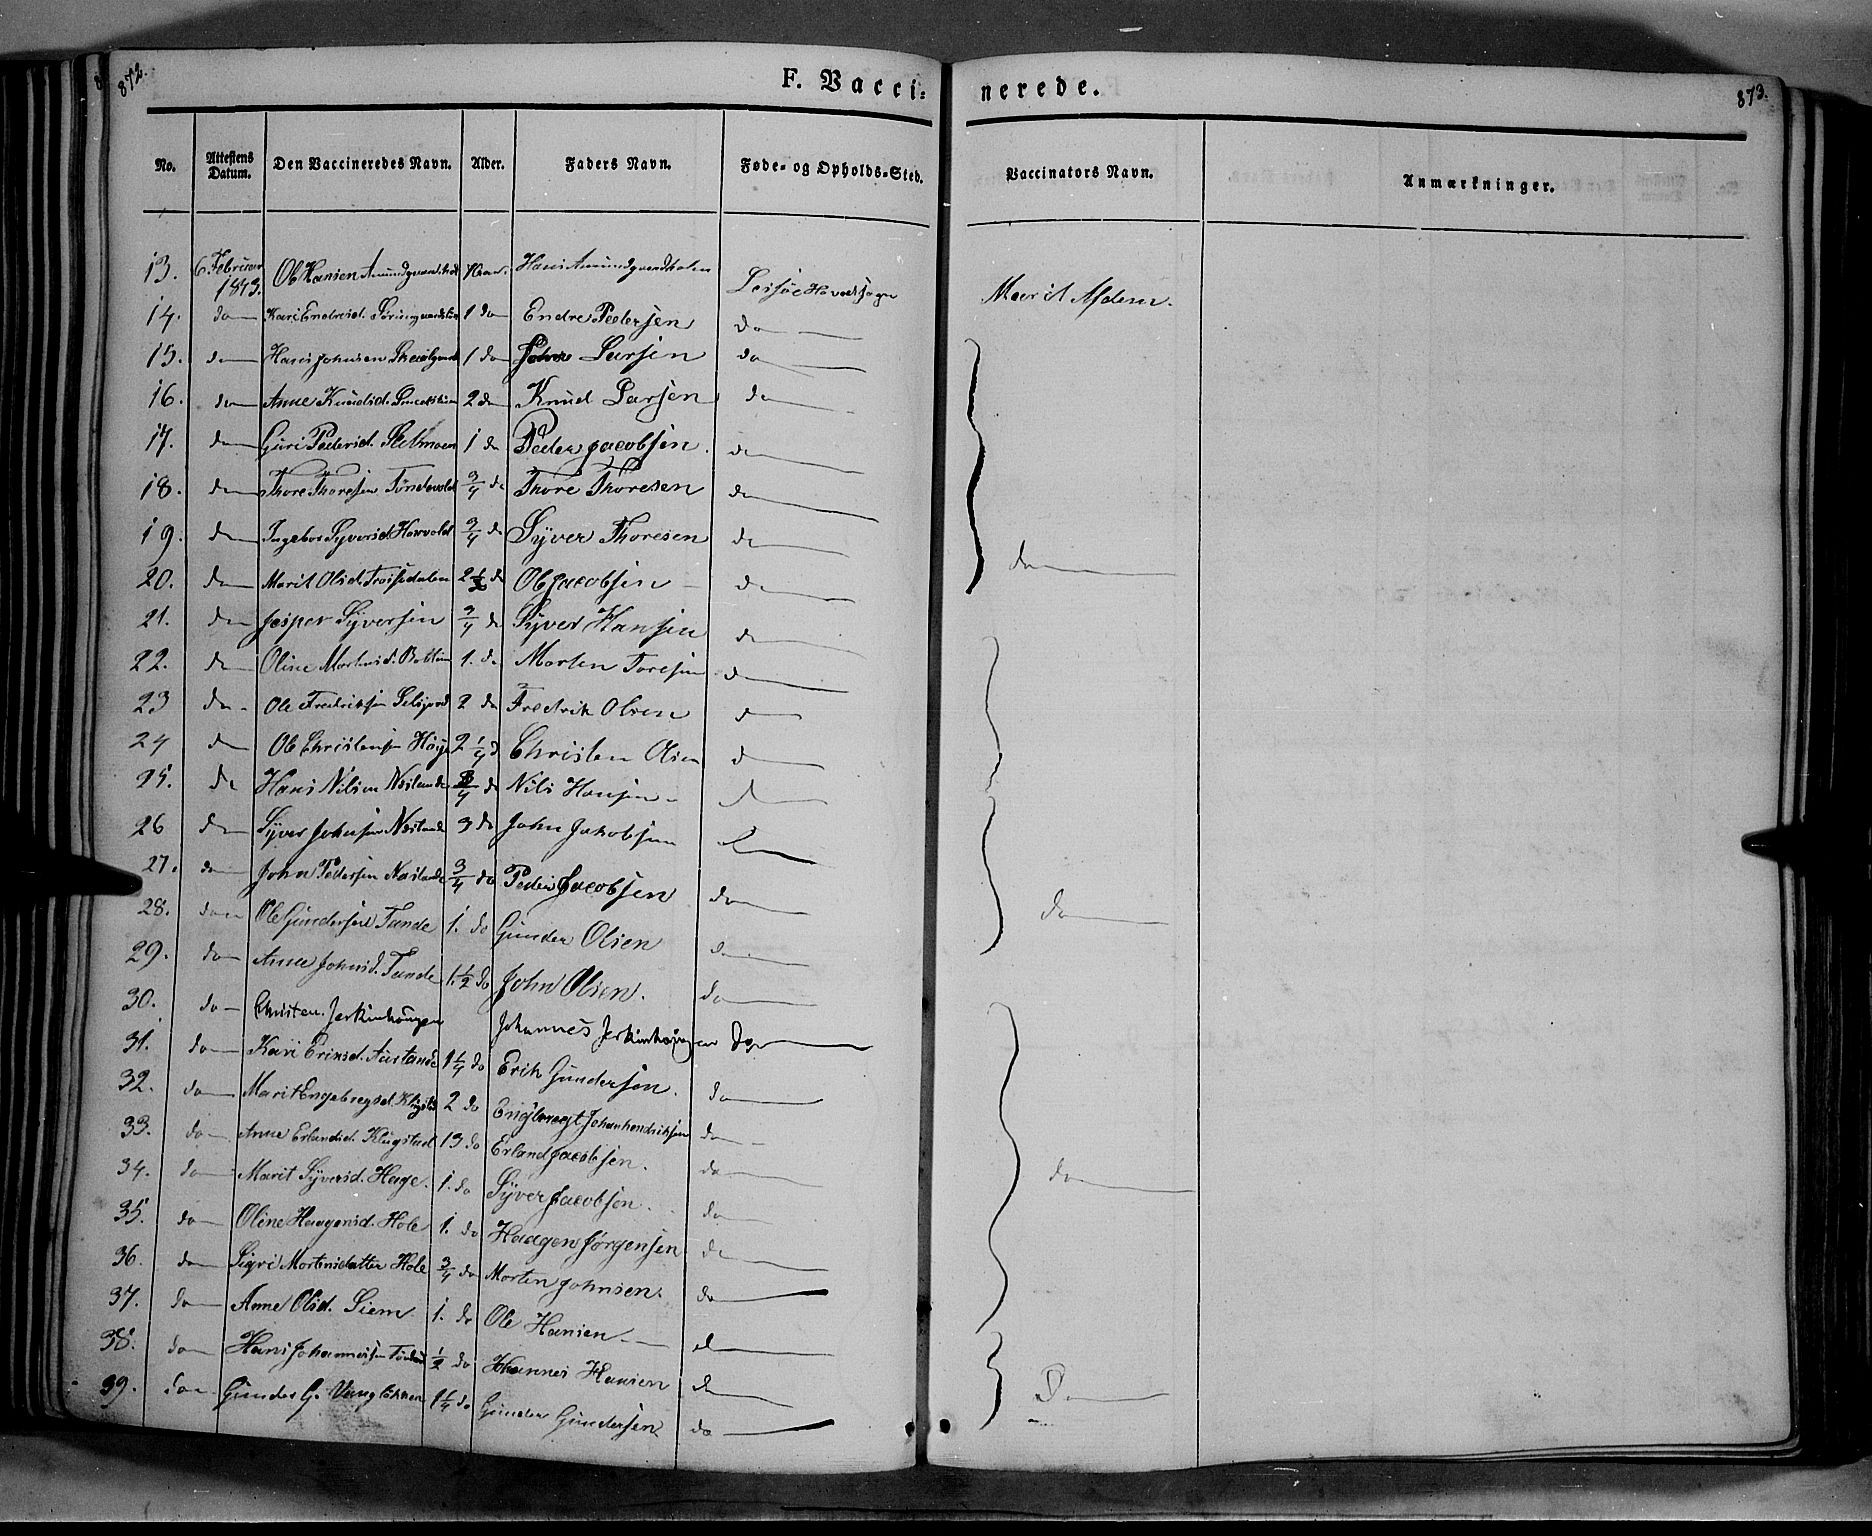 872.
F. Vacci=
nerede.
873.
No. Attestens Datum. Den Vaccineredes Navn. Alder. Faders Navn. Føde= og Opholds=Sted. Vaccinators Navn. Anmærkninger.
13. 6 Februar 1843. Ole Hansen Hans Lessøe Hovedsogn Marit Asdem.
14. do Kari Endresd. 1 do Endre Pedersen do
15. do Hans Johnsen 1 do John Larsen do
16. do Anne Knudsd. 2 do Knud Larsen do
17. do Guri Pedersd. 1 do Peder Jacobsen. do
18. do Thore Thoresen 3/4 do Thore Thoresen do
19. do Ingebor Syversd 3/4 do Syver Thoresen do do
20. do Marit Olsd. 2 1/2 do Ole Jacobsen do
21. do Jesper Syversen 3/4 do Syver Hansen do
22. do Oline Mortensd. 1. do Morten Toresen do
23 do Ole Fredriksen 2 do Fredrik Olsen do
24 do Ole Christensen 2 1/4 do Christen Olsen do
25. do Hans Nilsen 3/4 do Nils Hansen do
26 do Syver Johnsen 3 do John Jakobsen do
27. do John Pedersen 3/4 do Peder Jacobsen do
28. do Ole Gundersen Tande 1. do Gunder Olsen do do
29. do Anne Johnsd. Tande 1 1/2 do John Olsen. do
30. do Christen Jerkinhougen Johannes Jerkinhougen Do
31. do Kari Eriksd. 1 1/4 do Erik Gundersen. do
32. do Marit Engebregsd. 2 do Engebregt Johanhendriksen do
33. do Anne Erlandsd. Klugstad 13 do Erland Jacobsen. do
34. do Marit Syversd. Hage. 1. do Syver Jacobsen. do do
35. do Oline Haagensd. Hole 1. do Haagen Jørgensen do
36. do Sigri Mortensdatter Hole 3/4 do Morten Johnsen. do
37. do Anne Olsd. Siem 1. do Ole Hansen do
38. do Hans Johannessen 1/2 do Johannes Hansen do
39. do Gunder G. 1 1/4 do Gunder Gundersen do Do